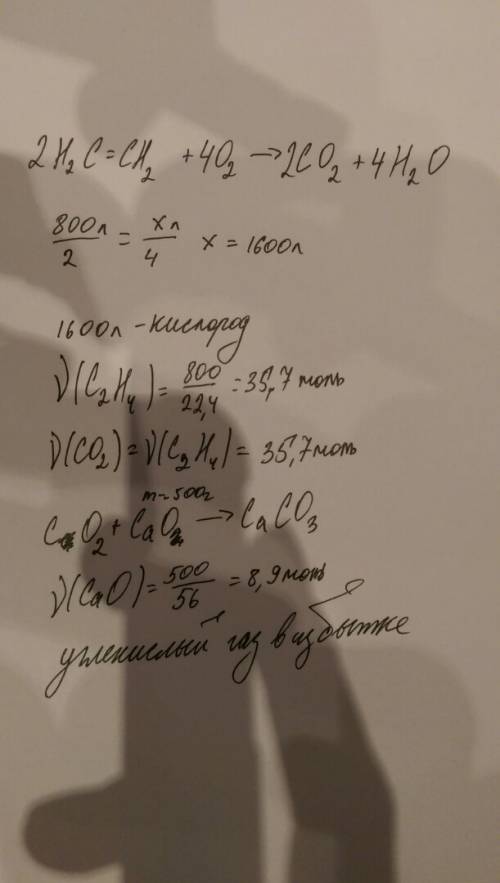 2H₂C=CH₂ + 4O₂ → 2CO₂ + 4H₂O
800л/2 = xл/4 x = 1600л
1600л - кислород
ν(C₂H₄) = 800/22,4 = 35,7 моль
ν(CO₂) = ν(C₂H₄) = 35,7 моль
m=500г
CO₂ + CaO → CaCO₃
ν(CaO) = 500/56 = 8,9 моль
углекислый газ в избытке